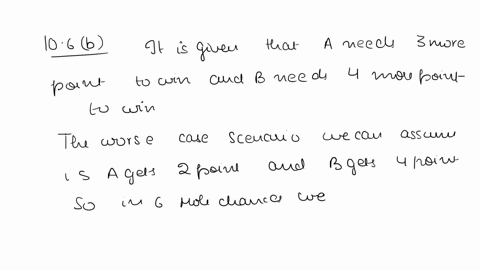 10.6(b) It is given that A needs 3 more
point to win and B needs 4 more point
to win
The worse case scenario we can assume
is A gets 2 point and B gets 4 point
So in 6 more chances we